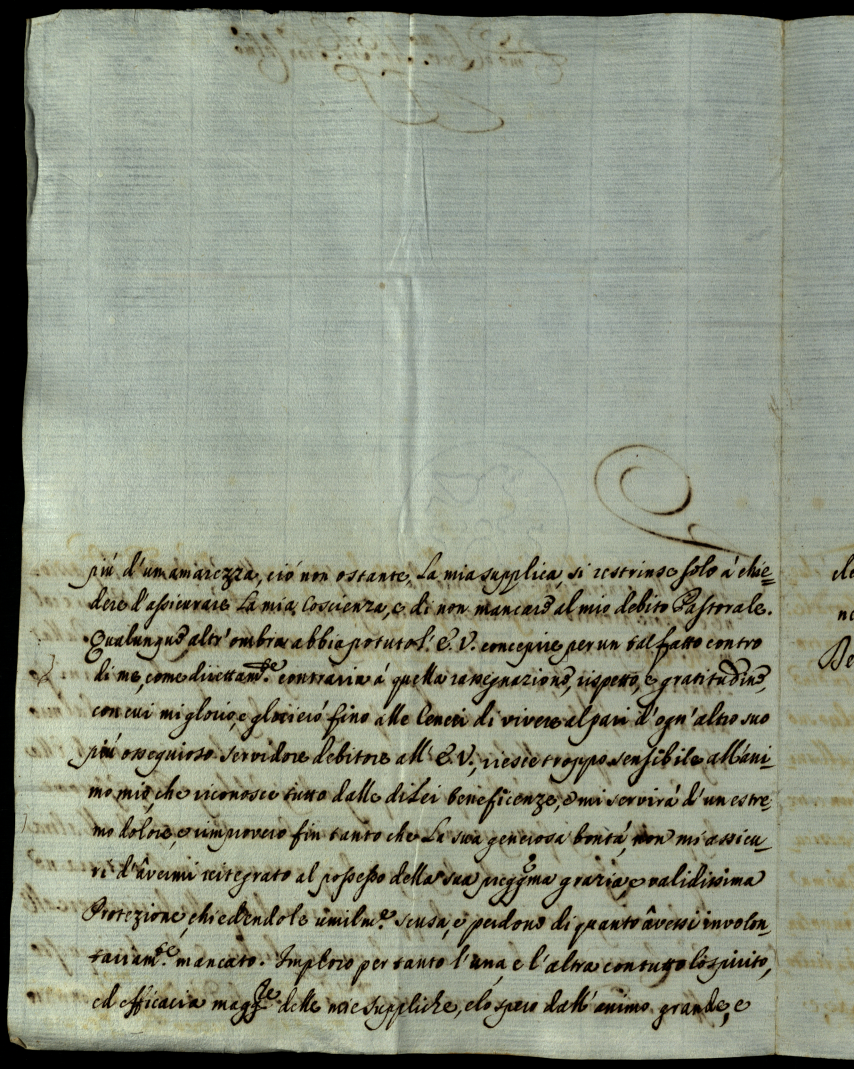 più d'un amarezza, ciò non ostante, la mia supplica, si restrinse solo à chie=
dere d'assicurare la mia Coscienza, e di non mancare al mio debito Pastorale.
Qualunque altr'ombra abbia potuto l'E.V. concepire per un tal fatto contro
di me, come direttam.te contraria á quella rassegnazione, rispetto, e gratitudine,
con cui mi glorio, e glorieró fino alle Ceneri di vivere al pari d'ogn'altro suo
più ossequioso servidore debitore all'E.V., riesce troppo sensibile all'ani-
mo mio, che riconosce tutto dalle di Lei beneficenze, e mi servirá d'un estre-
mo dolore, e improvero fin tanto che la sua generosa bontá, non mi assicu-
ri d'âvermi reitegrato al possesso della sua pregg.ma grazia e validissima
Protezione, chiedendole umilm.e scusa, e perdono di quanto âvessi involon-
tariam.te mancato. Imploro per tanto l'una e l'altra con tutto lo spirito,
ed efficacia magg.re delle mie suppliche, e lo spero dall'animo grande, e